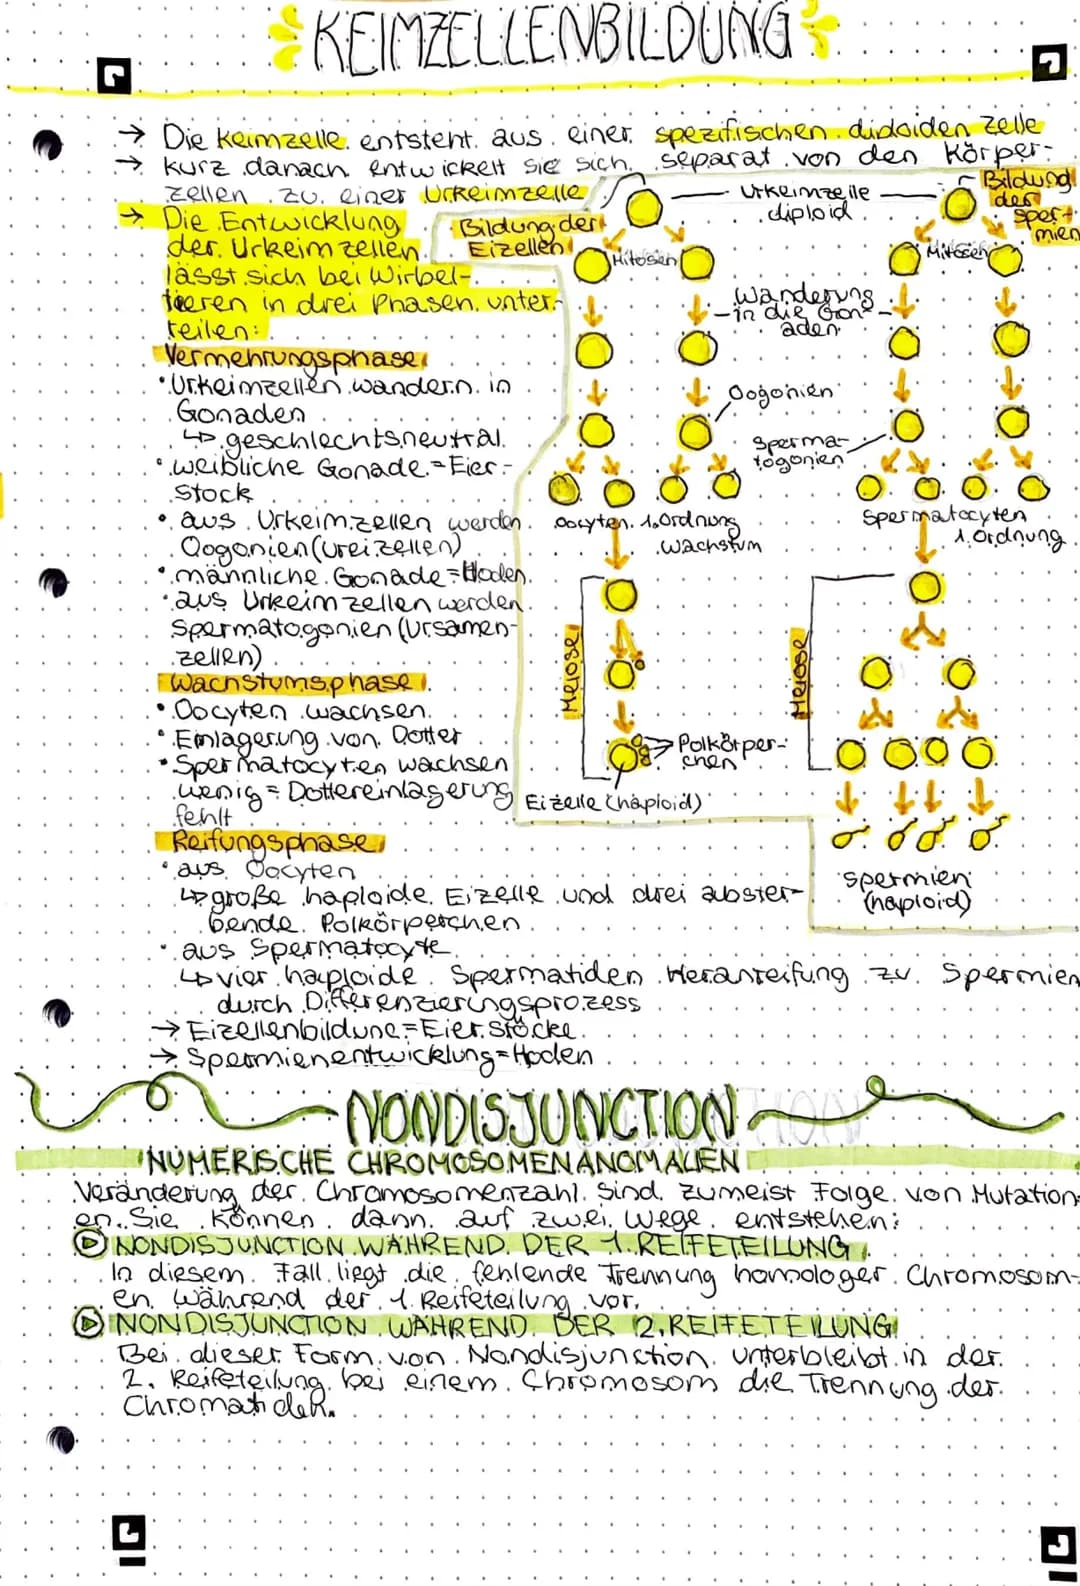 KEIMZELLENBILDUNG
→ Die Keimzelle entsteht aus einer spezifischen diploiden Zelle
→ kurz danach entwickelt sie sich separat von den Körper-
zellen zu einer Urkeimzelle
→ Die Entwicklung
der Urkeimzellen
lässt sich bei Wirbel-
tieren in drei Phasen unter-
teilen:
Vermehrungsphase
• Urkeimzellen wandern in
Gonaden
↳ geschlechtsneutral
• weibliche Gonade = Eier-
stock
• aus Urkeimzellen werden
Oogonien (Ureizellen)
• männliche Gonade = Hoden
• aus Urkeimzellen werden
Spermatogonien (Ursamen-
zellen)
Wachstumsphase
• Oocyten wachsen
• Einlagerung von Dotter
• Spermatocyten wachsen
wenig = Dottereinlagerung
fehlt
Reifungsphase
• aus Oocyten
↳ große haploide Eizelle und drei abster-
bende Polkörperchen
• aus Spermatocyte
↳ vier haploide Spermatiden Heranreifung zu Spermien
durch Differenzierungsprozess
→ Eizellenbildung = Eierstöcke
→ Spermienentwicklung = Hoden
Bildung der
Eizellen
Urkeimzelle
diploid
Bildung
der
Sper-
mien
Mitosen
Mitosen
Wanderung
in die Gon-
aden
Oogonien
Sperma-
togonien
Oocyten 1. Ordnung
Wachstum
Spermatocyten
1. Ordnung
Meiose
Meiose
Polkörper-
chen
Eizelle (haploid)
Spermien
(haploid)
NONDISJUNCTION
NUMERISCHE CHROMOSOMENANOMALIEN
Veränderung der Chromosomenzahl sind zumeist Folge von Mutation-
en. Sie können dann auf zwei Wege entstehen:
NONDISJUNCTION WÄHREND DER 1. REIFETEILUNG
In diesem Fall liegt die fehlende Trennung homologer Chromosom-
en während der 1. Reifeteilung vor.
NONDISJUNCTION WÄHREND DER 2. REIFETEILUNG
Bei dieser Form von Nondisjunction unterbleibt in der
2. Reifeteilung bei einem Chromosom die Trennung der
Chromatiden.